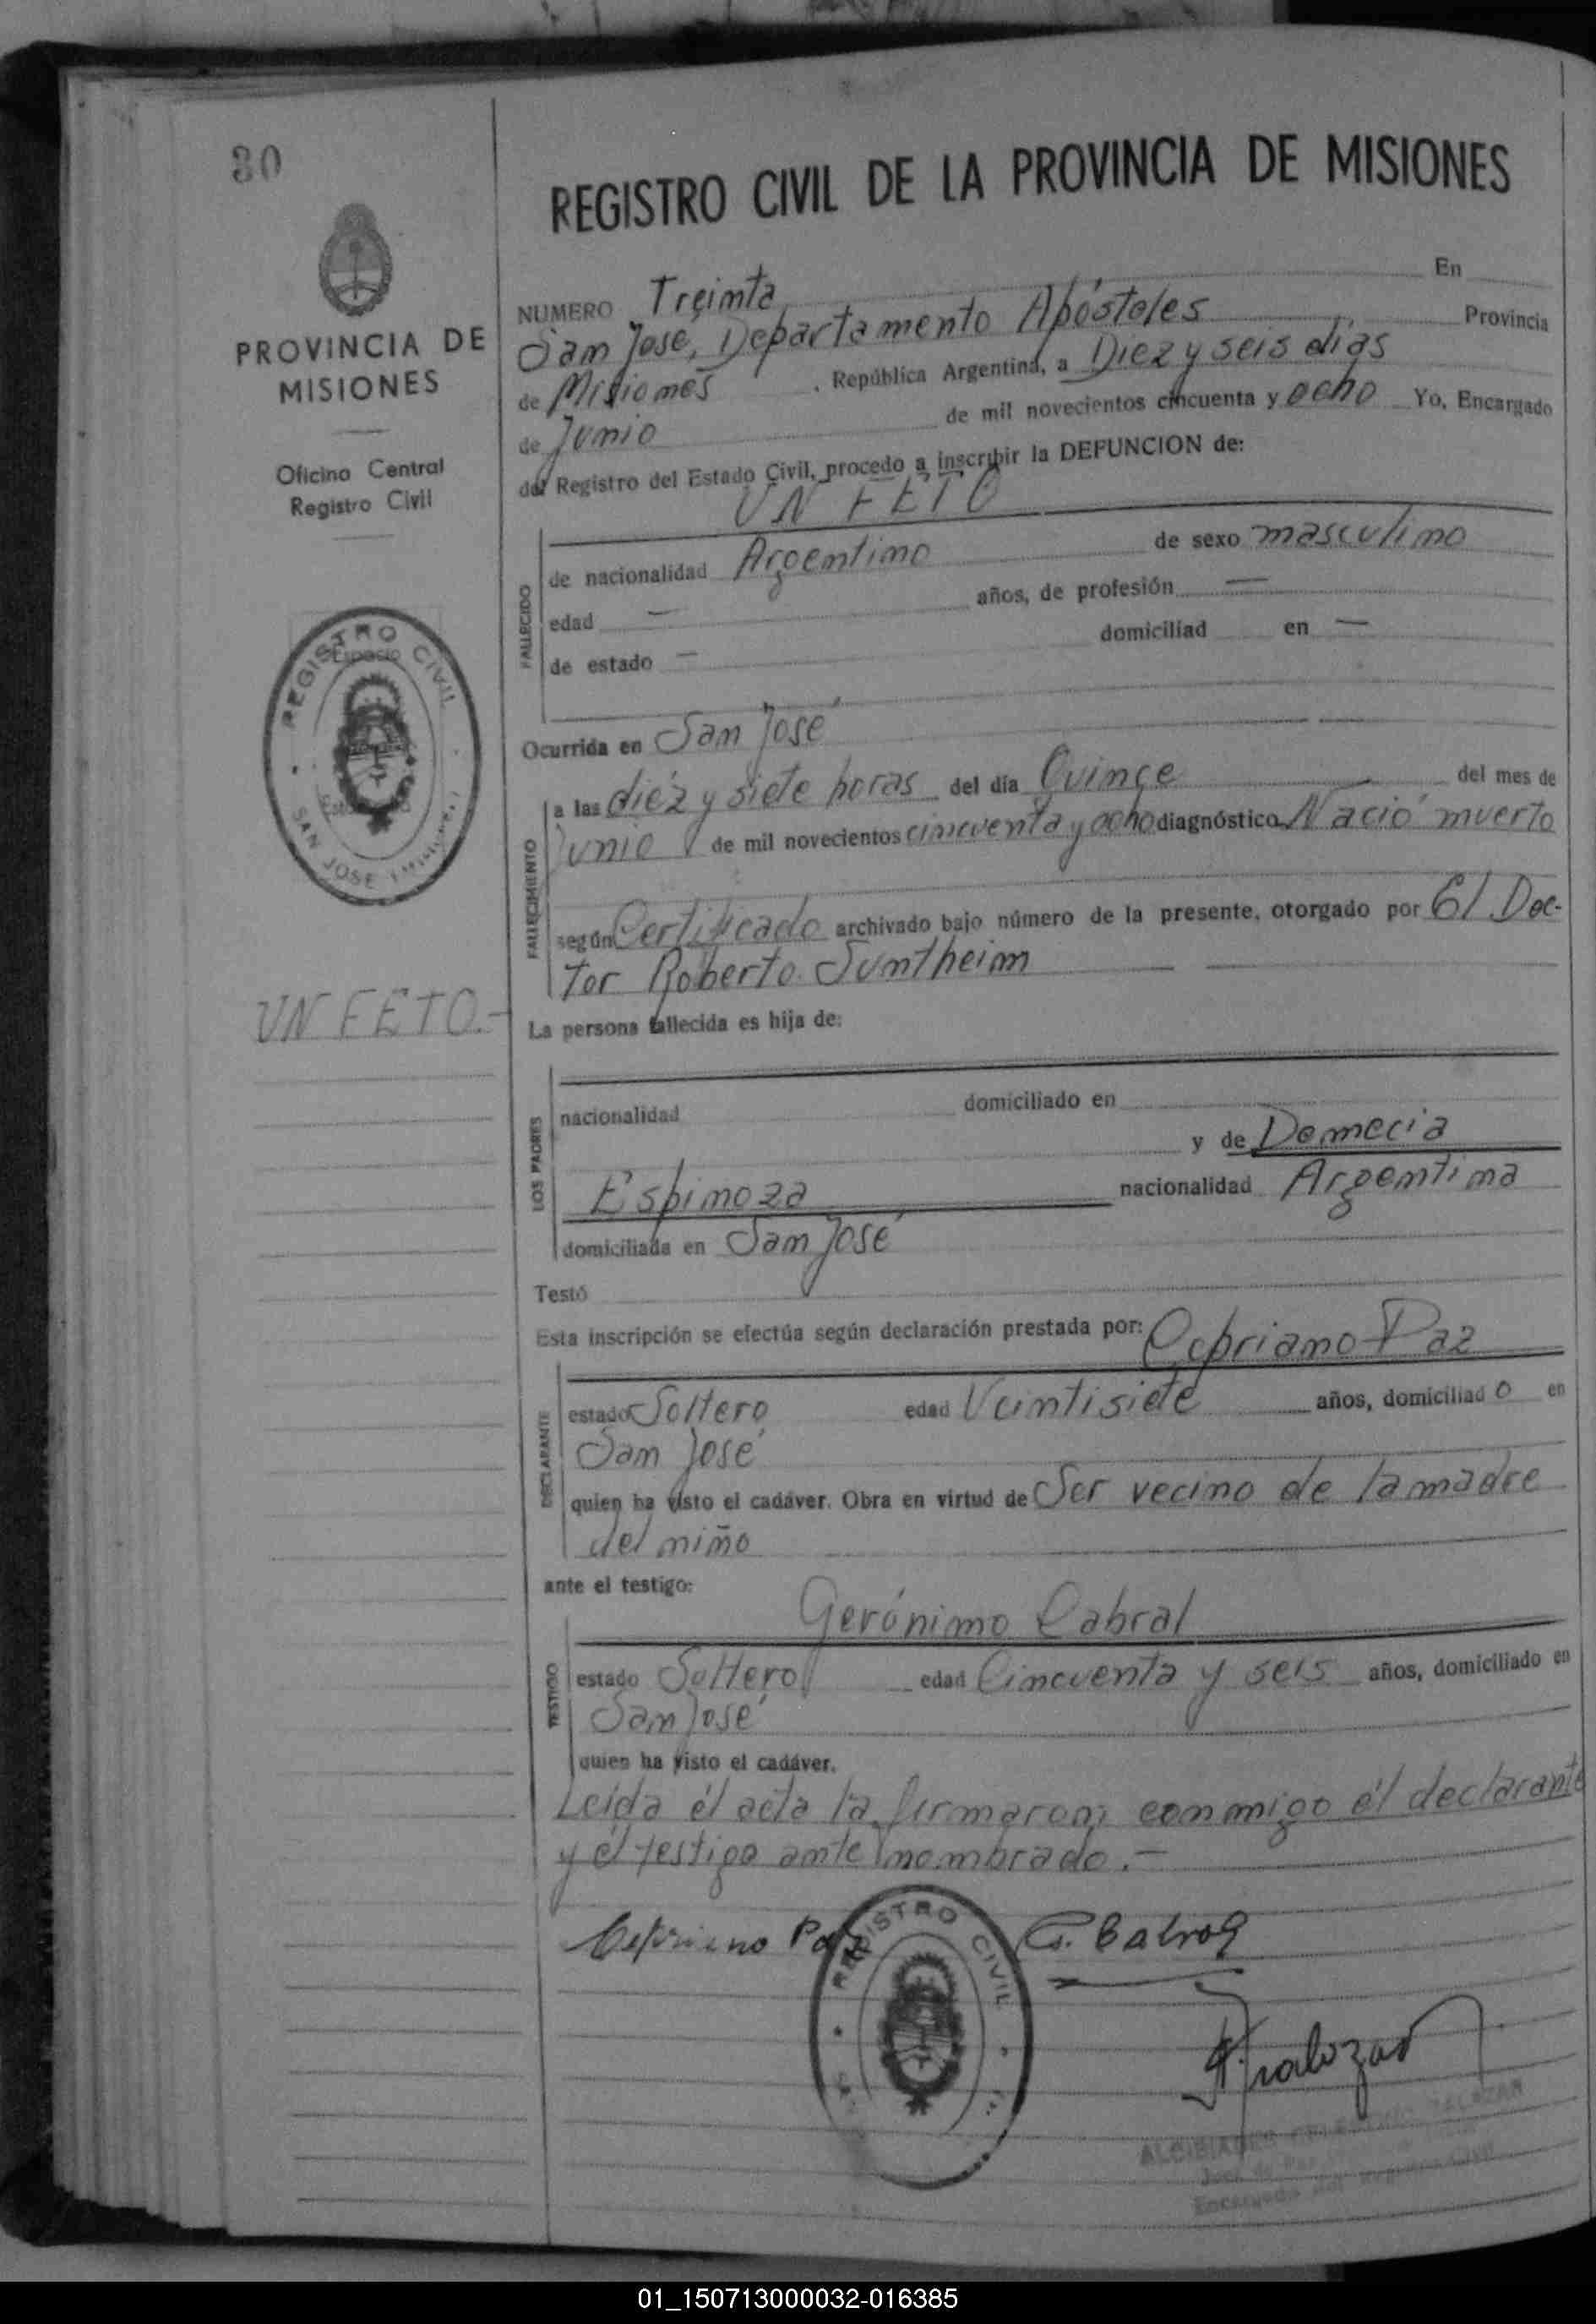 30
PROVINCIA DE
MISIONES
Oficina Central
Registro Civil
REGISTRO CIVIL
SAN JOSE
UN FETO.-
REGISTRO CIVIL DE LA PROVINCIA DE MISIONES
NUMERO Treinta En
San José, Departamento Apóstoles Provincia
de Misiones, República Argentina, a Diez y seis días
de Junio de mil novecientos cincuenta y ocho Yo, Encargado
del Registro del Estado Civil, procedo a inscribir la DEFUNCION de:
UN FETO
FALLECIDO
de nacionalidad Argentino de sexo masculino
edad — años, de profesión —
de estado — domiciliad en —
Ocurrida en San José
FALLECIMIENTO
a las diéz y siete horas del día Quince del mes de
Junio de mil novecientos cincuenta y ocho diagnóstico Nació muerto
según Certificado archivado bajo número de la presente, otorgado por El Doc-
tor Roberto Suntheim
La persona fallecida es hija de:
LOS PADRES
nacionalidad domiciliado en
y de Demecia
Espinoza nacionalidad Argentina
domiciliada en San José
Testó
Esta inscripción se efectúa según declaración prestada por: Cepriano Paz
DECLARANTE
estado Soltero edad Veintisiete años, domiciliado en
San José
quien ha visto el cadáver. Obra en virtud de Ser vecino de la madre
del niño
ante el testigo:
Gerónimo Cabral
TESTIGO
estado Soltero edad Cincuenta y seis años, domiciliado en
San José
quien ha visto el cadáver.
Leída él acta la firmaron conmigo él declarante
y él testigo ante nombrado.-
Cepriano Paz G. Cabral
REGISTRO CIVIL
ALCIBIADES SALAZAR
Encargado del Registro Civil
01_150713000032-016385